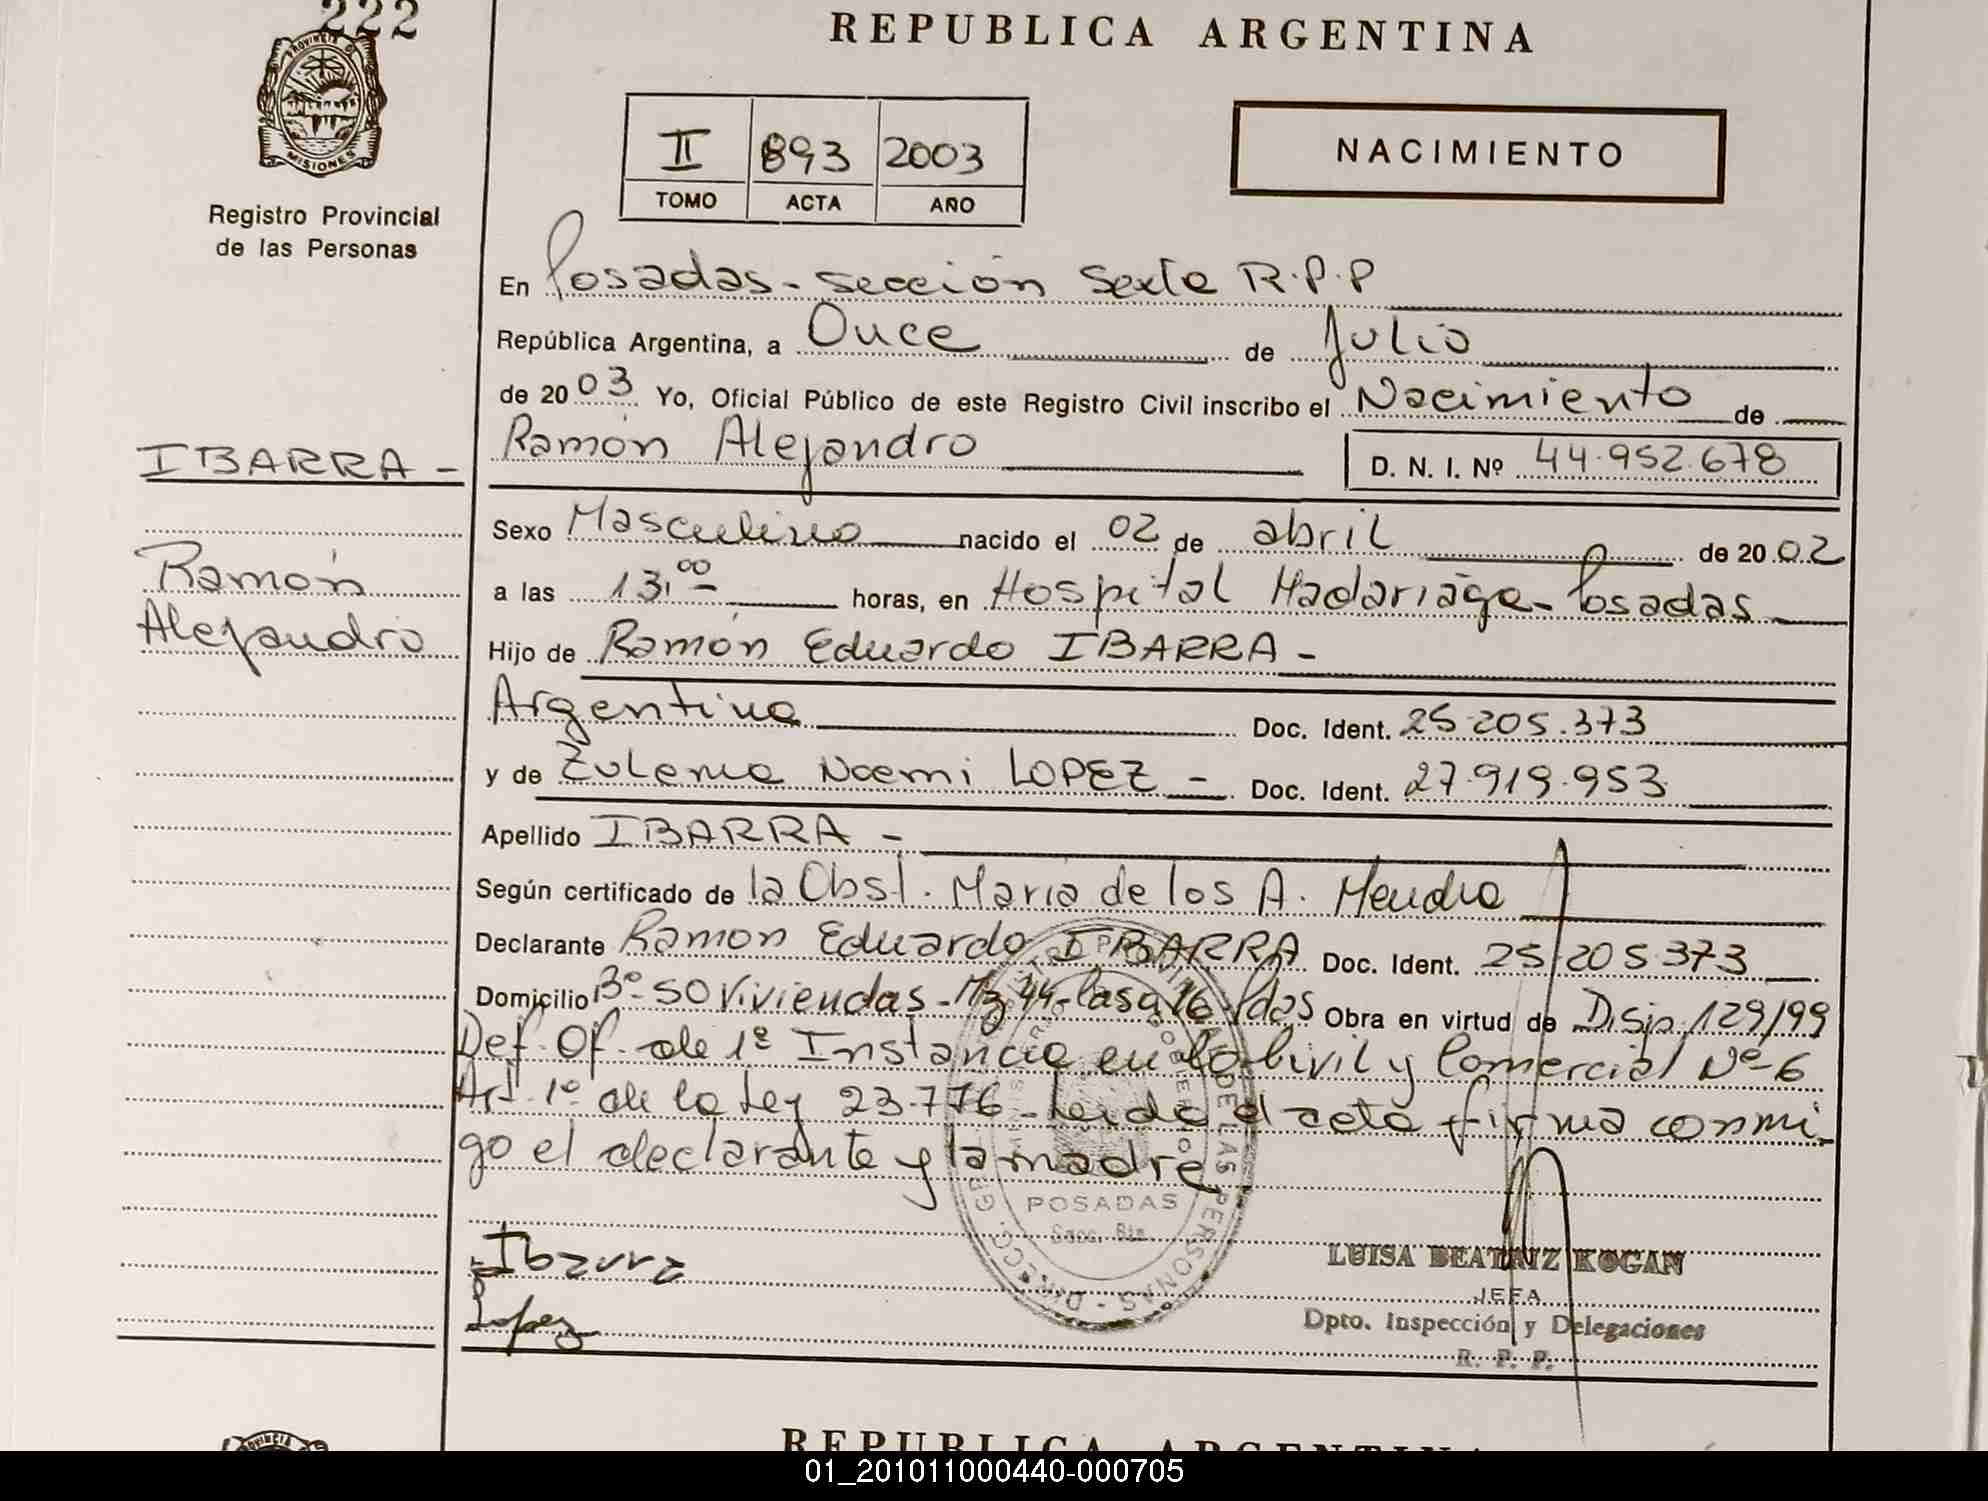 222
REPUBLICA ARGENTINA
PROVINCIA DE
MISIONES
Registro Provincial
de las Personas
II 893 2003
TOMO ACTA AÑO
NACIMIENTO
En Posadas - sección Sexta R.P.P
República Argentina, a Once de Julio
de 2003 Yo, Oficial Público de este Registro Civil inscribo el Nacimiento de
IBARRA - Ramón Alejandro D. N. I. Nº 44.952.678
Sexo Masculino nacido el 02 de abril de 2002
Ramón
a las 13,00 - horas, en Hospital Madariaga - Posadas
Alejandro
Hijo de Ramón Eduardo IBARRA -
Argentina Doc. Ident. 25.205.373
y de Zulema Noemi LOPEZ - Doc. Ident. 27.919.953
Apellido IBARRA -
Según certificado de la Obst. Maria de los A.
Declarante Ramon Eduardo IBARRA Doc. Ident. 25.205.373
Domicilio Bº - 50 Viviendas - Mz 44 - Casa 16 - Pdas Obra en virtud de Disp. 129/99
Def. Of. de 1ª Instancia en lo Civil y Comercial Nº 6
Art. 1º de la Ley 23.776 - Leida el acta firma conmi-
go el declarante y la madre
POSADAS
Ibarra
Lopez
LUISA BEATRIZ KOGAN
JEFA
Dpto. Inspección y Delegaciones
R. P. P.
PROVINCIA
REPUBLICA ARGENTINA
01_201011000440-000705